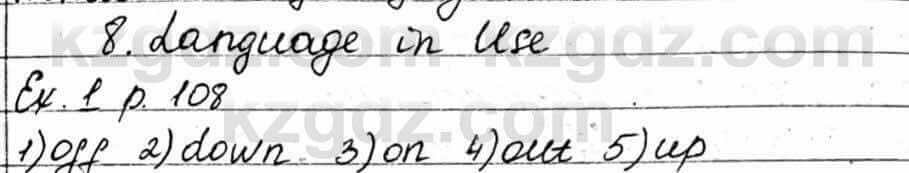 8. Language in Use
Ex. 1 p. 108
1) off 2) down 3) on 4) out 5) up
kzgdz.com kzgdz.com
kzgdz.com